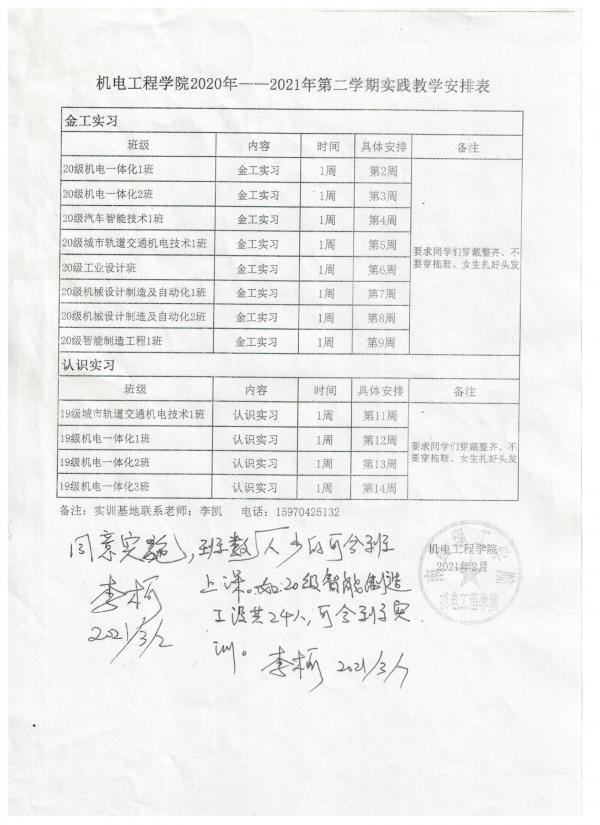 机电工程学院2020年——2021年第二学期实践教学安排表
金工实习
班级 内容 时间 具体安排 备注
20级机电一体化1班 金工实习 1周 第2周
20级机电一体化2班 金工实习 1周 第3周
20级汽车智能技术1班 金工实习 1周 第4周
20级城市轨道交通机电技术1班 金工实习 1周 第5周
要求同学们穿戴整齐、不
要穿拖鞋、女生扎好头发
20级工业设计班 金工实习 1周 第6周
20级机械设计制造及自动化1班 金工实习 1周 第7周
20级机械设计制造及自动化2班 金工实习 1周 第8周
20级智能制造工程1班 金工实习 1周 第9周
认识实习
班级 内容 时间 具体安排 备注
19级城市轨道交通机电技术1班 认识实习 1周 第11周
19级机电一体化1班 认识实习 1周 第12周
要求同学们穿戴整齐、不
要穿拖鞋、女生扎好头发
19级机电一体化2班 认识实习 1周 第13周
19级机电一体化3班 认识实习 1周 第14周
备注：实训基地联系老师：李凯 电话：15970425132
机电工程学院
2021年2月
机电工程学院
同意实施，班数人少的可合班
上课。如:20级智能制造
工设共24人,可合到实
训。
李柯
2021/3/2
李柯 2021/3/1